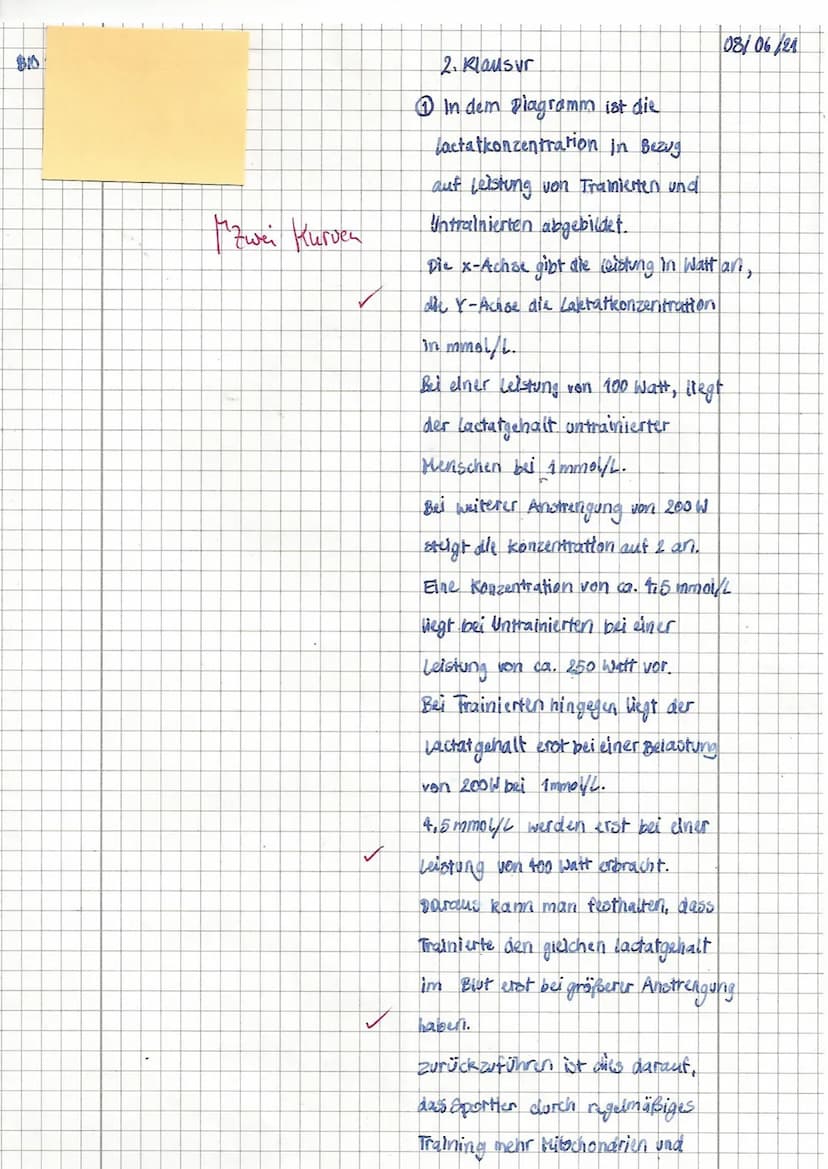 08/06/21
BIO
2. Klausur
① In dem Diagramm ist die
Lactatkonzentration in Bezug
auf Leistung von Trainierten und
Untrainierten abgebildet.
Zwei Kurven
Die x-Achse gibt die Leistung in Watt an,
die Y-Achse die Laktatkonzentration
in mmol/L.
Bei einer Leistung von 100 Watt, liegt
der Lactatgehalt untrainierter
Menschen bei 1mmol/L.
Bei weiterer Anstrengung von 200 W
steigt die Konzentration auf 2 an.
Eine Konzentration von ca. 4,5 mmol/L
liegt bei Untrainierten bei einer
Leistung von ca. 250 Watt vor.
Bei Trainierten hingegen liegt der
Lactatgehalt erst bei einer Belastung
von 200W bei 1mmol/L.
4,5 mmol/L werden erst bei einer
Leistung von 400 Watt erbracht.
Daraus kann man festhalten, dass
Trainierte den gleichen Lactatgehalt
im Blut erst bei größerer Anstrengung
haben.
zurückzuführen ist dies darauf,
das Sportler durch regelmäßiges
Training mehr Mitochondrien und